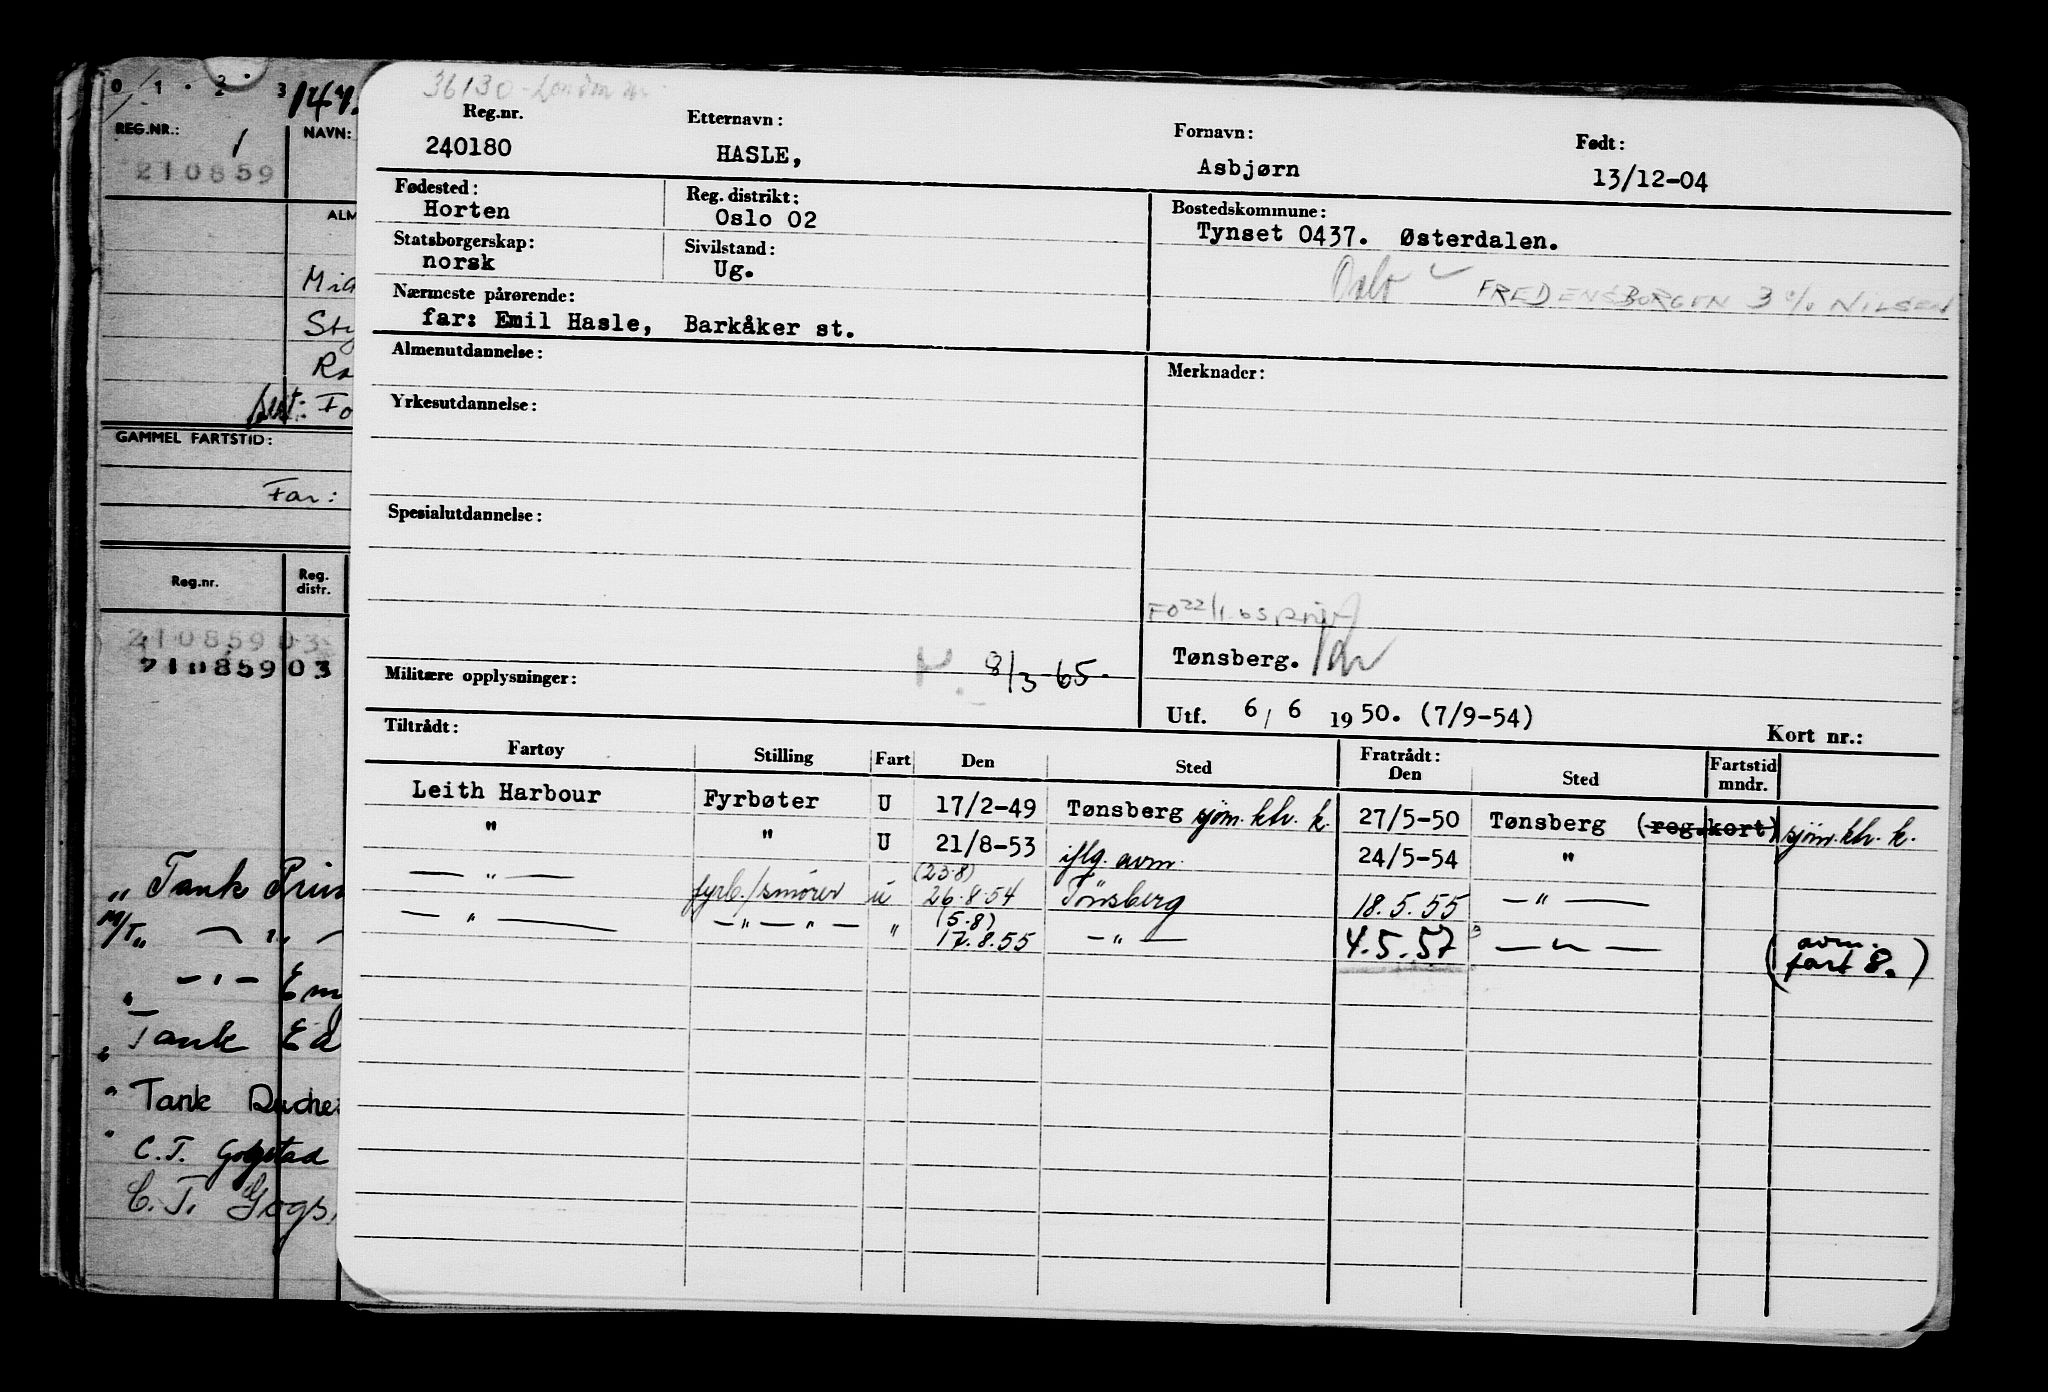 0 1 2 3
REG.NR.: 1 NAVN:
210859
GAMMEL FARTSTID:
Far:
Reg.nr. Reg. distr.
210859 03
210859 03
" Tank
M/T "
" Tank
" Tank
" C.T. Gogstad
C.T.
36130
Reg.nr. Etternavn: Fornavn: Født:
240180 HASLE, Asbjørn 13/12-04
Fødested: Reg. distrikt: Bostedskommune:
Horten Oslo 02 Tynset 0437. Østerdalen.
Statsborgerskap: Sivilstand:
norsk Ug. Oslo FREDENSBORGEN 3 c/o NILSEN
Nærmeste pårørende:
far: Emil Hasle, Barkåker st.
Almenutdannelse: Merknader:
Yrkesutdannelse:
Spesialutdannelse:
Tønsberg.
Militære opplysninger: 8/3-65.
Utf. 6/6 1950. (7/9-54) Kort nr.:
Tiltrådt: Fratrådt:
Fartøy Stilling Fart Den Sted Den Sted Fartstid mndr.
Leith Harbour Fyrbøter U 17/2-49 Tønsberg sjøm.ktr. k. 27/5-50 Tønsberg (reg.kort) sjøm.ktr. k.
" " U 21/8-53 iflg. avm. 24/5-54 "
— " — fyrb./smører u (23.8) 26.8.54 Tönsberg 18.5.55 — " —
— " — — " — " — " (5.8) 17.8.55 — " — 4.5.57 — " — (avm. fart 8.)